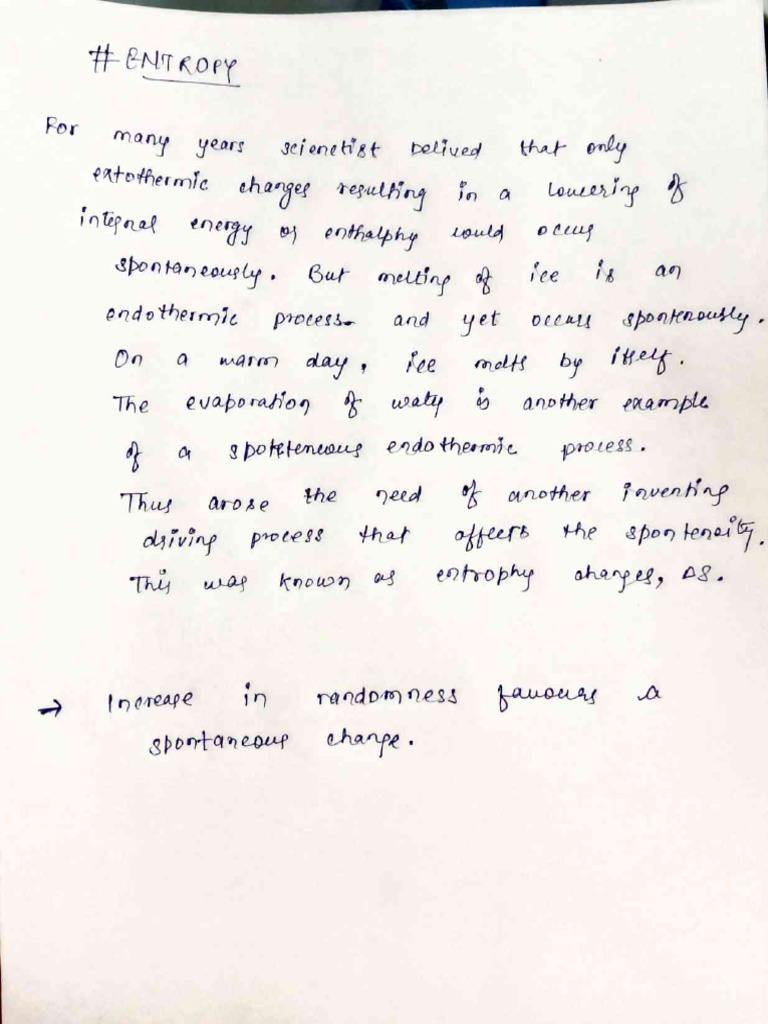 # ENTROPY
For many years scienetist belived that only
extothermic changes resulting in a lowering of
integnal energy or enthalphy could occur
spontaneously. But melting of ice is an
endothermic process. and yet occurs spontenously.
On a warm day, ice melts by itself.
The evaporation of water is another example
of a spoteteneous endothermic process.
Thus arose the need of another inventing
driving process that affects the spontenity.
This was known as entrophy changes, ΔS.
→ Increase in randomness favours a
spontaneous change.